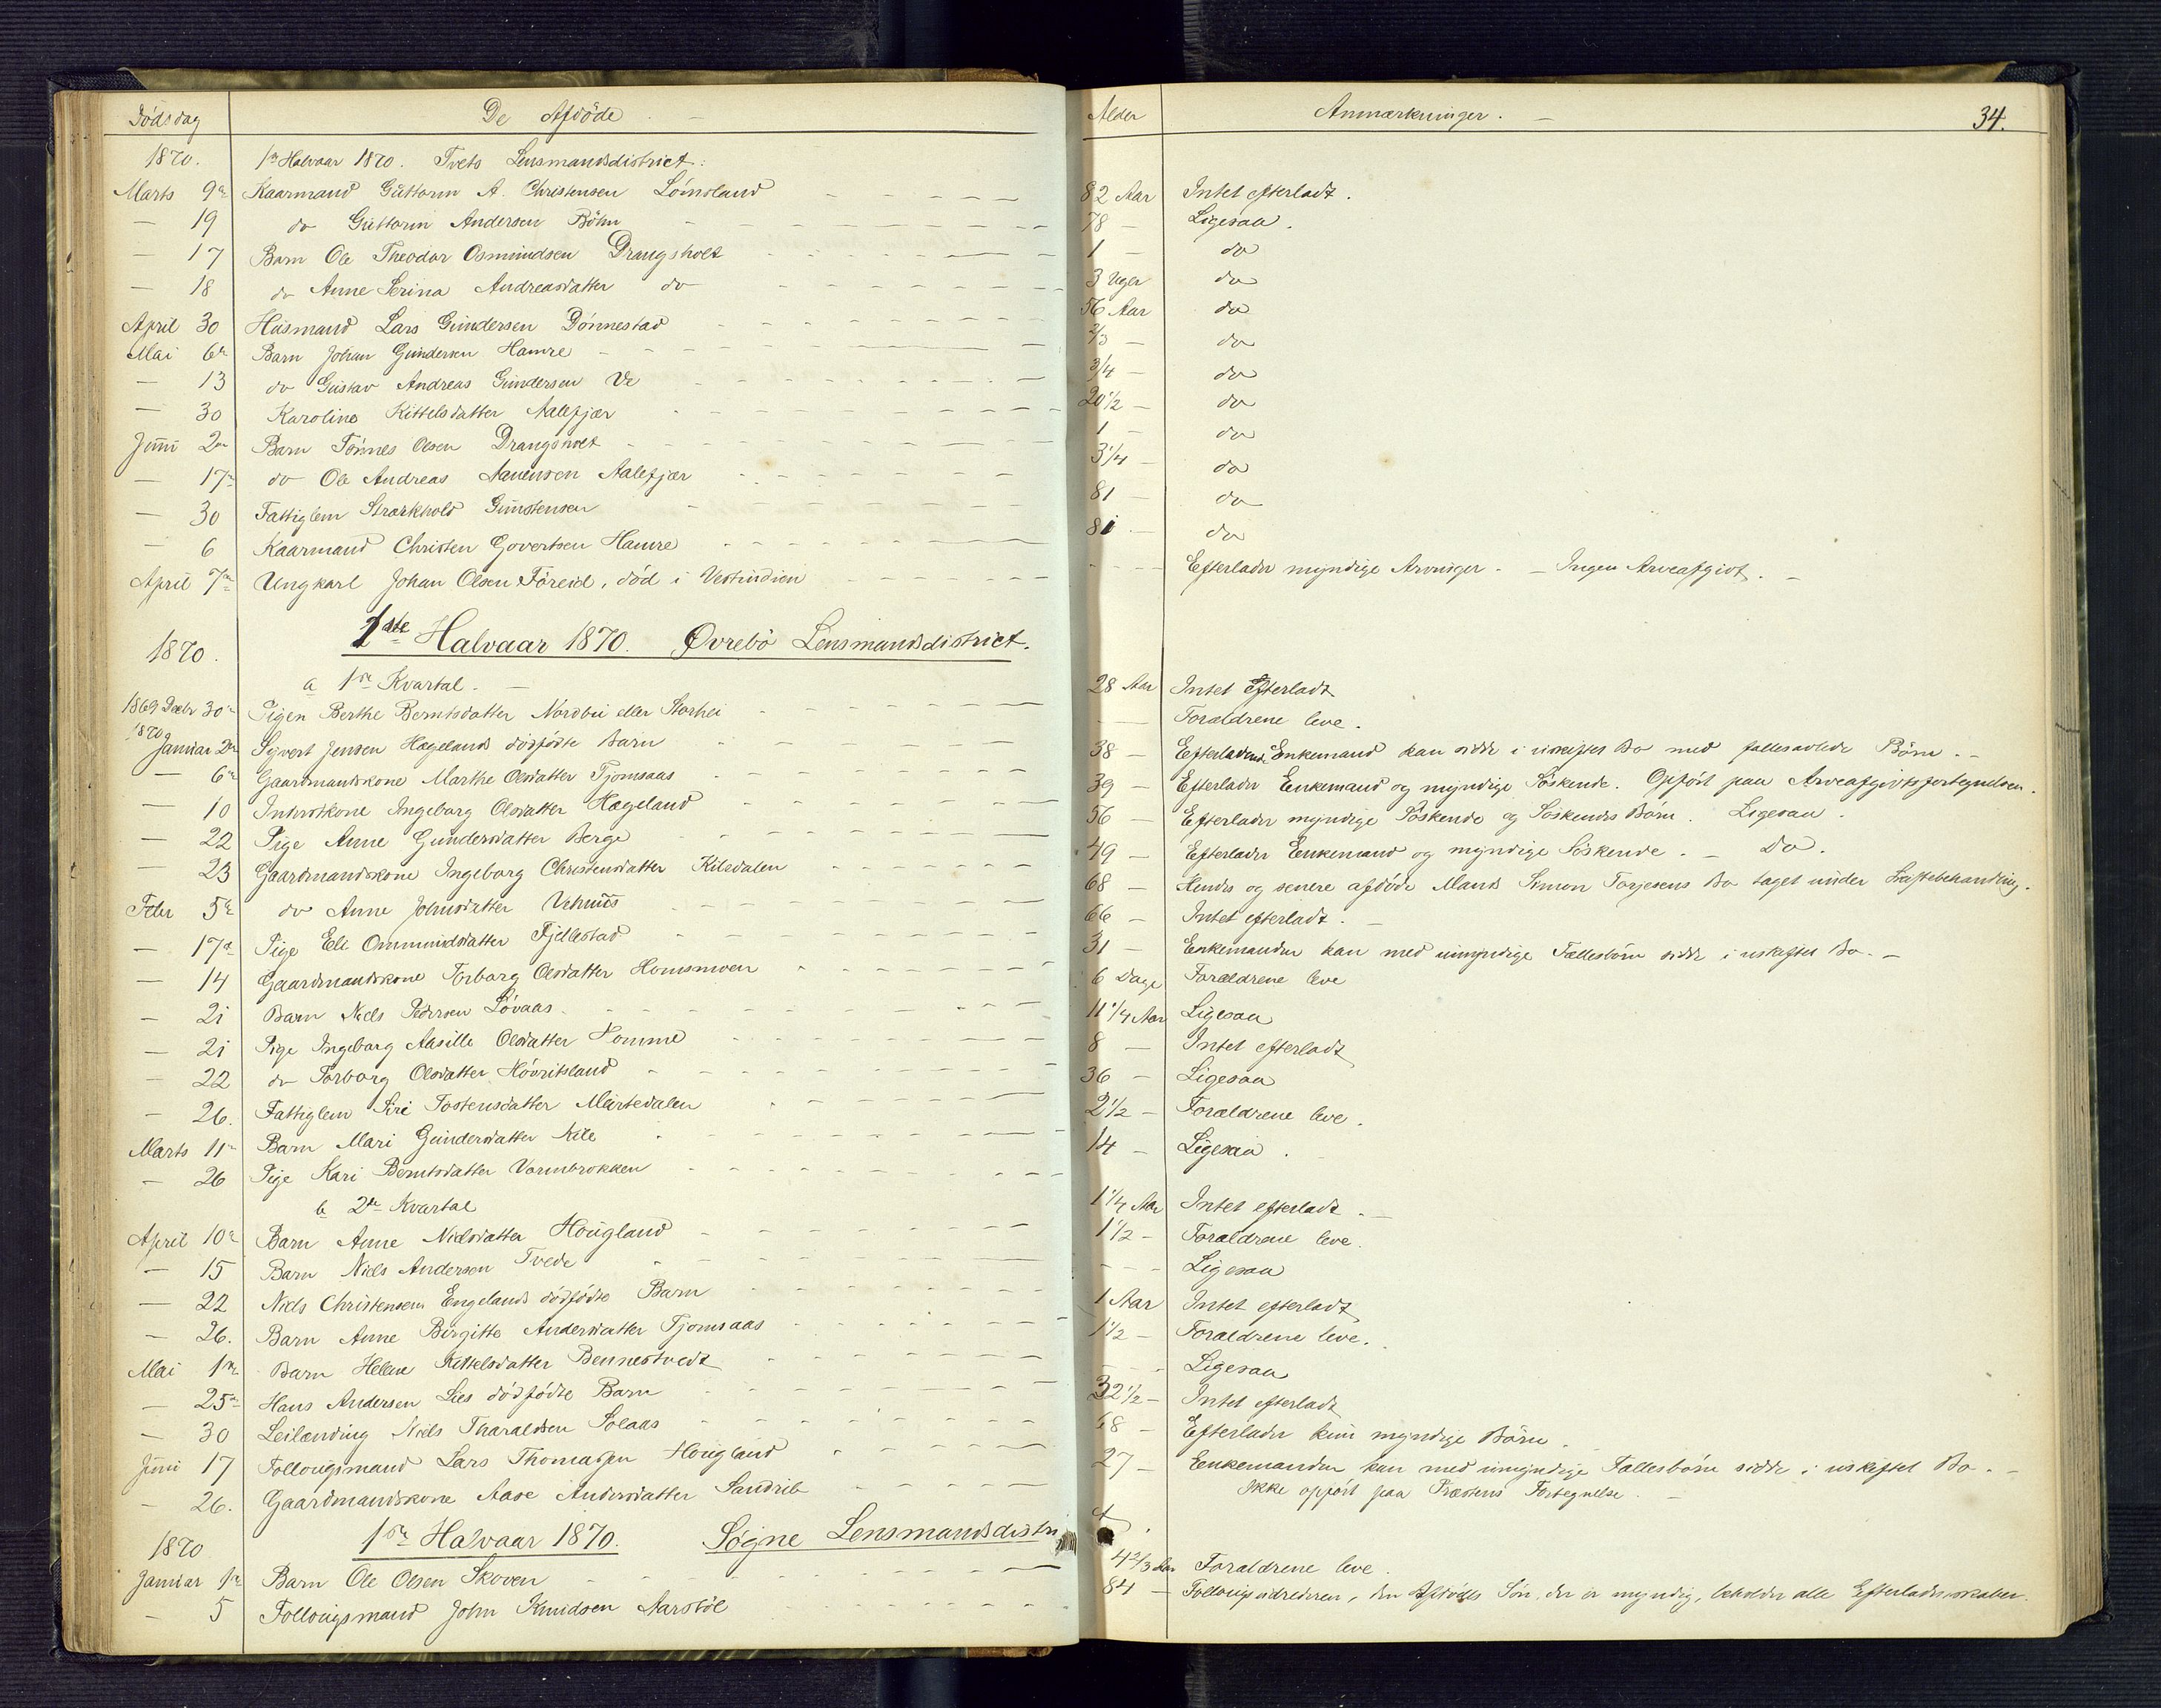 Dødsdag De Afdøde Alder Anmærkninger. 34.
1870. 1ste Halvaar 1870. Tvets Lensmandsdistrict:
Marts 9de Kaarmand Guttorm A. Christensen Lømsland 82 Aar Intet efterladt.
— 19 do Guttorm Andersen Bøhn 78 — Ligesaa.
— 17 Barn Ole Theodor Osmundsen Drangsholt 1 — do
— 18 do Anne Serina Andreasdatter do 3 Uger do
April 30 Husmand Lars Gundersen Dønnestad 56 Aar do
Mai 6te Barn Johan Gundersen Hamre 2/3 — do
— 13 do Gustav Andreas Gundersen Ve 3/4 — do
— 30 Karoline Kittelsdatter Aalefjær 20 1/2 — do
Juni 2den Barn Tønnes Olsen Drangsholt 1 — do
— 17de do Ole Andreas Aanensen Aalefjær 3 1/4 — do
— 30 Fattiglem Stærkhold Gunstensen 81 — do
— 6 Kaarmand Christen Govertsen Hamre 81 — do
April 7de Ungkarl Johan Olsen Føreid, død i Vestindien - - - Efterlader myndige Arvinger. — Ingen Arveafgivt. —
1870. 1ste Halvaar 1870. Øvrebö Lensmandsdistrict.
a 1ste Kvartal. —
1869 Decbr 30te Pigen Berthe Berntsdatter Nordbu eller Storhei 28 Aar Intet Efterladt
1870 Januar 2den Syvert Jensen Hægelands dødfødte Barn — Forældrene leve.
— 6te Gaardmandskone Marthe Olsdatter Tjomsaas 38 — Efterladende Enkemand kan sidde i uskiftet Bo med fællesavlede Børn. —
— 10 Inderstkone Ingeborg Olsdatter Hægeland 39 — Efterlader Enkemand og myndige Søskende. Opført paa Arveafgivtsfortegnelsen.
— 22 Pige Anne Gundersdatter Berge 56 — Efterlader myndige Søskende og Søskendes Børn. Ligesaa.
— 23 Gaardmandskone Ingeborg Christensdatter Kilsdalen 49 — Efterlader Eenkemand og myndige Søskende. — Do.
Febr 5te do Anne Johnsdatter Vehuus 68 — Hendes og senere afdøde Mands Simon Torjesens Bo taget under Skiftebehandling.
— 17de Pige Eli Ommundsdatter Fjellestad 66 — Intet efterladt. —
— 14 Gaardmandskone Torborg Olsdatter Homsmoen 31 — Enkemanden kan med umyndige Fællesbørn sidde i uskiftet Bo. —
— 21 Barn Niels Pedersen Løvaas 6 Dage Forældrene leve
— 21 Pige Ingeborg Aasille Olsdatter Homme 11 1/4 Aar Ligesaa
— 22 do Torborg Olsdatter Høvritsland 8 — Intet efterladt
— 26. Fattiglem Siri Tostensdatter Mærtedalen 36 — Ligesaa
Marts 11te Barn Mari Gundersdatter Kile 2 1/2 — Forældrene leve.
— 26 Pige Kari Berntsdatter Vormbrokken 14 — Ligesaa.
b 2de Kvartal
April 10de Barn Anne Nielsdatter Hougland 1 1/4 Aar Intet efterladt. —
— 15 Barn Niels Andersen Tvede 1 1/2 — Forældrene leve.
— 22 Niels Christensens Engelands dødfødte Barn - - - Ligesaa
— 26. Barn Anne Birgitte Andersdatter Tjomsaas 1 Aar Intet efterladt
Mai 1ste Barn Helene Kittelsdatter Bennestvedt 1 1/2 — Forældrene leve.
— 25de Hans Andersen Lies dødfødte Barn - - - Ligesaa
— 30 Leilænding Niels Tharaldsen Solaas 32 1/2 — Intet efterladt
Juni 17 Follougsmand Lars Thomassen Hougland 68 — Efterlader kun myndige Børn.
— 26. Gaardmandskone Aase Andersdatter Sandrib 27 — Eenkemanden kan med umyndige Fællesbørn sidde i uskiftet Bo. —
Ikke opført paa Præstens Fortegnelse. —
1870 1ste Halvaar 1870. Søgne Lensmandsdistrict
Januar 1ste Barn Ole Olsen Skoven 4 2/3 Aar Forældrene leve.
— 5 Follougsmand John Knudsen Aarstöl 84 — Follougsudrederen, den Afdødes Søn, der er myndig, beholder alle Efterladenskaber.